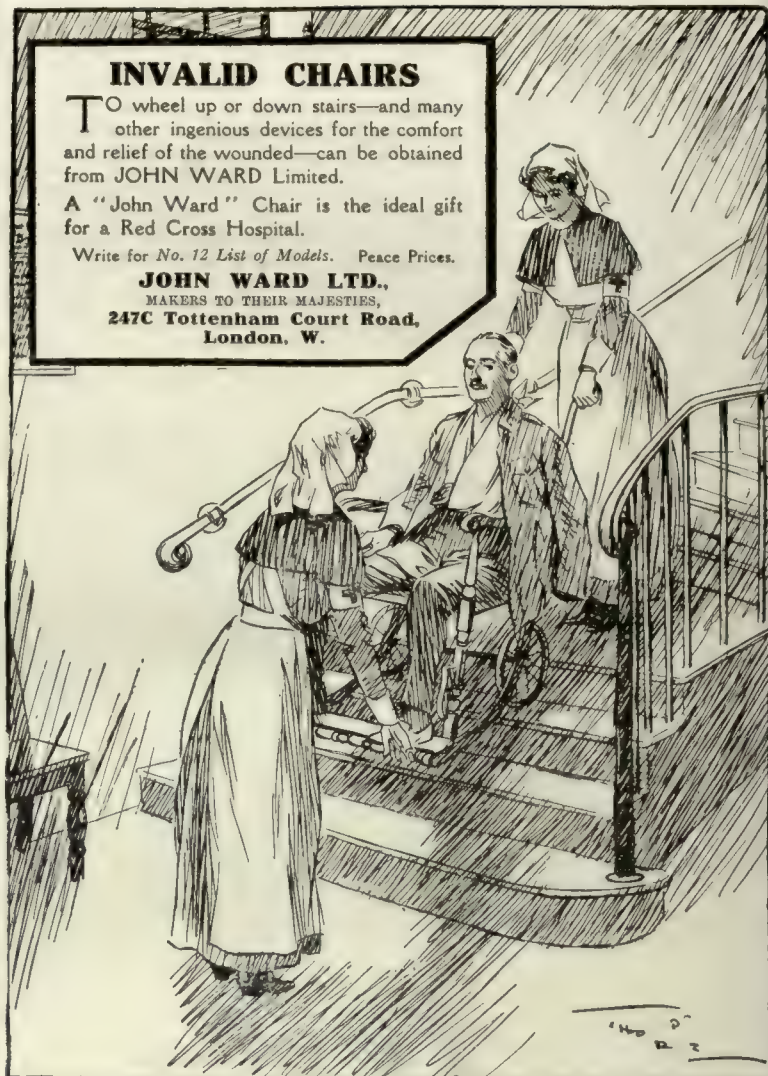 INVALID CHAIRS
TO wheel up or down stairs—and many
other ingenious devices for the comfort
and relief of the wounded—can be obtained
from JOHN WARD Limited.
A "John Ward" Chair is the ideal gift
for a Red Cross Hospital.
Write for No. 12 List of Models. Peace Prices.
JOHN WARD LTD.,
MAKERS TO THEIR MAJESTIES,
247C Tottenham Court Road,
London, W.